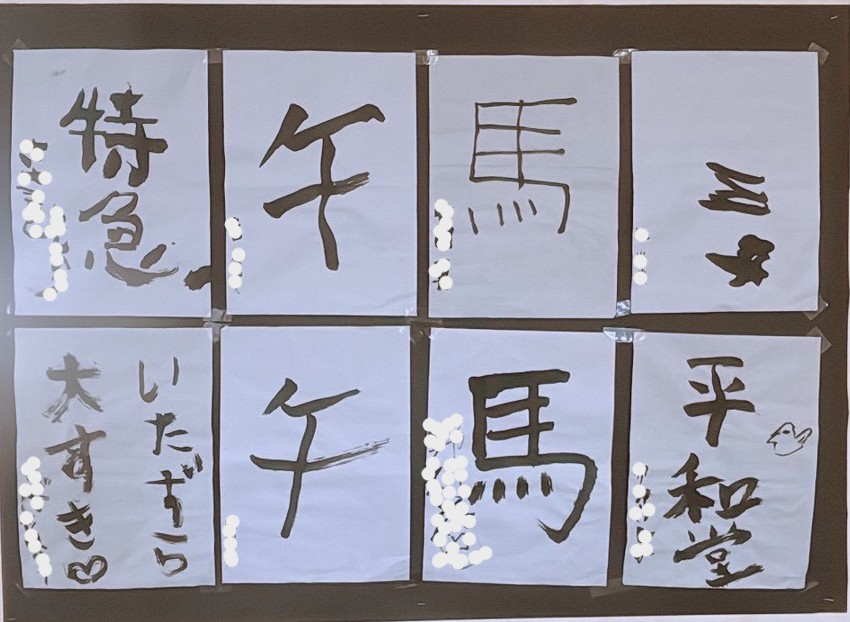 特急
午
馬
いたずら
大すき♡
午
馬
平和堂